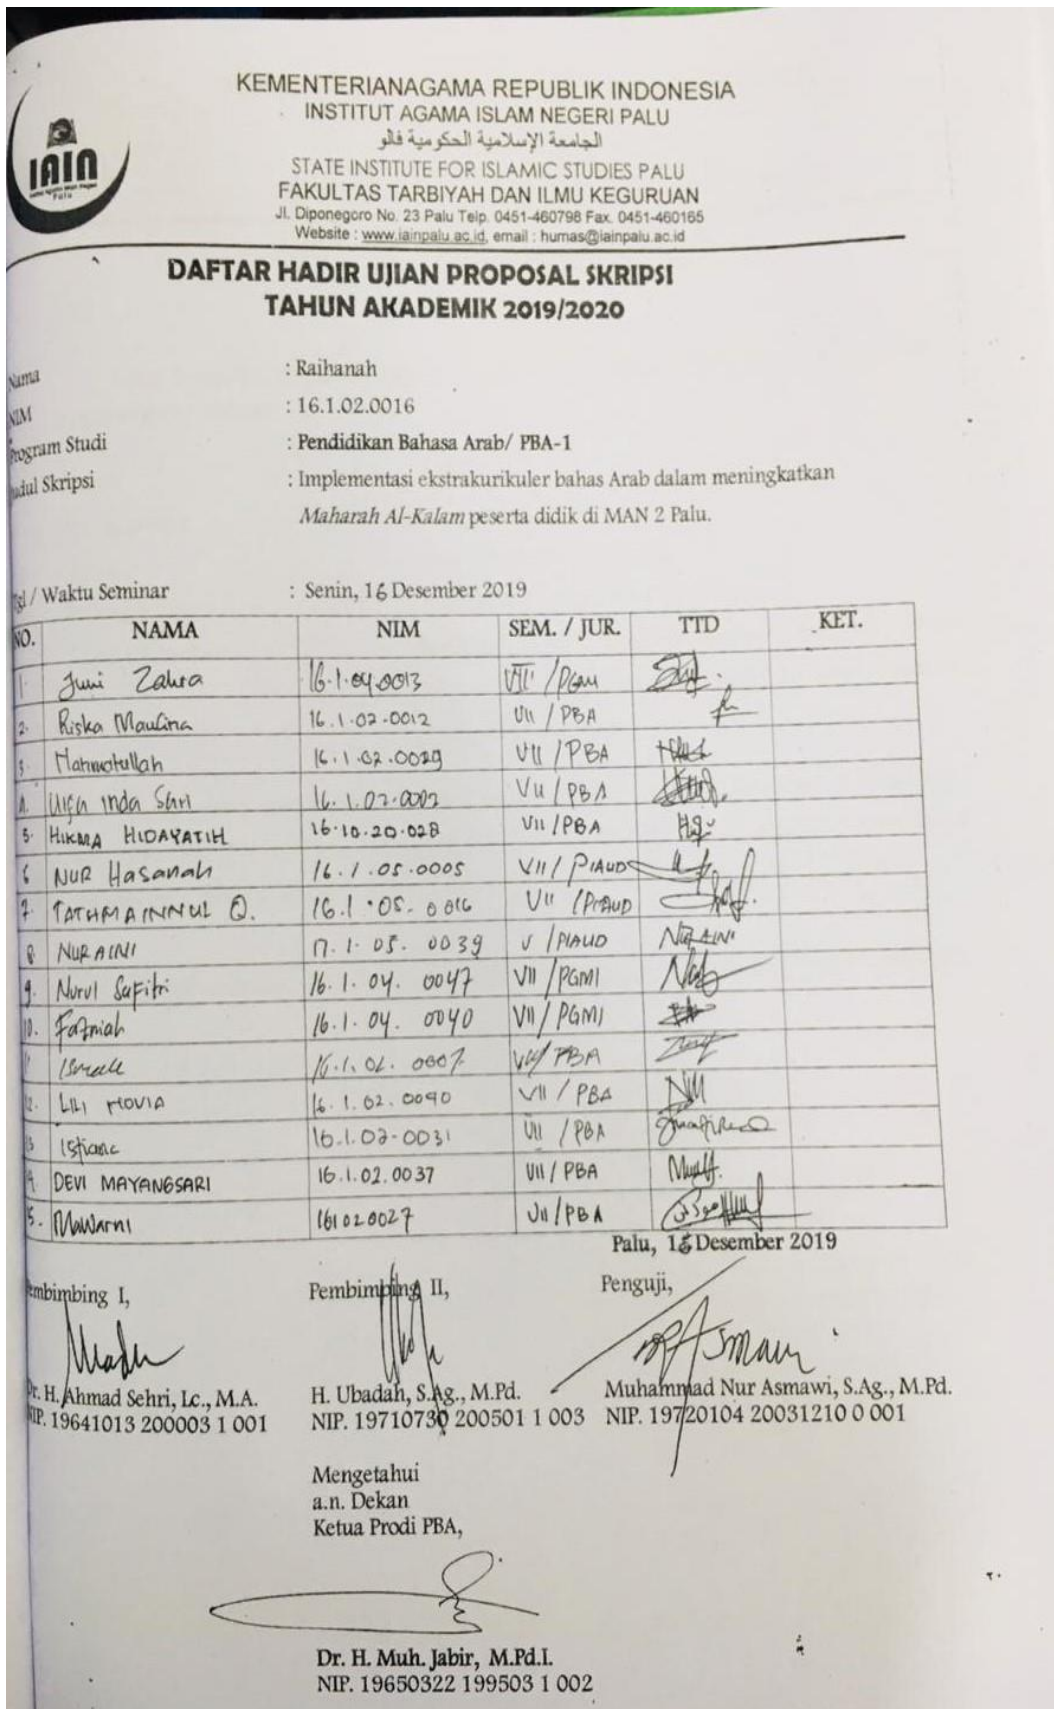 IAIN
Palu
KEMENTERIANAGAMA REPUBLIK INDONESIA
INSTITUT AGAMA ISLAM NEGERI PALU
الجامعة الإسلامية الحكومية فالو
STATE INSTITUTE FOR ISLAMIC STUDIES PALU
FAKULTAS TARBIYAH DAN ILMU KEGURUAN
Jl. Diponegoro No. 23 Palu Telp. 0451-460798 Fax. 0451-460165
Website : www.iainpalu.ac.id, email : humas@iainpalu.ac.id
DAFTAR HADIR UJIAN PROPOSAL SKRIPSI
TAHUN AKADEMIK 2019/2020
Nama : Raihanah
NIM : 16.1.02.0016
Program Studi : Pendidikan Bahasa Arab/ PBA-1
udul Skripsi : Implementasi ekstrakurikuler bahas Arab dalam meningkatkan
Maharah Al-Kalam peserta didik di MAN 2 Palu.
Tgl / Waktu Seminar : Senin, 16 Desember 2019
NO. NAMA NIM SEM. / JUR. TTD KET.
1. Juni Zahra 16.1.04.0013 VII /PGMI
2. Riska Maulina 16.1.02.0012 VII / PBA
3. Rahmatullah 16.1.02.0029 VII / PBA
4. Inda Sari 16.1.02.0002 VII / PBA
5. HIKMA HIDAYATIH 16.10.20.028 VII /PBA
6 NUR Hasanah 16.1.05.0005 VII / PIAUD
7. TATHMAINNUL Q. 16.1.05.0016 VII /PIAUD
8. NURAINI 17.1.05.0039 V /PIAUD NURAINI
9. Nurul Safitri 16.1.04.0047 VII /PGMI
10. 16.1.04.0040 VII/ PGMI
11 16.1.02.0007 VII/ PBA
12. LILI NOVIA 16.1.02.0040 VII / PBA
13 Istiana 16.1.02-0031 VII / PBA
14. DEVI MAYANGSARI 16.1.02.0037 VII / PBA
15. Mawarni 161020027 VII /PBA
Palu, 16 Desember 2019
embimbing I, Pembimbing II, Penguji,
Dr. H. Ahmad Sehri, Lc., M.A. H. Ubadah, S.Ag., M.Pd. Muhammad Nur Asmawi, S.Ag., M.Pd.
NIP. 19641013 200003 1 001 NIP. 19710730 200501 1 003 NIP. 19720104 20031210 0 001
Mengetahui
a.n. Dekan
Ketua Prodi PBA,
Dr. H. Muh. Jabir, M.Pd.I.
NIP. 19650322 199503 1 002
٢٠